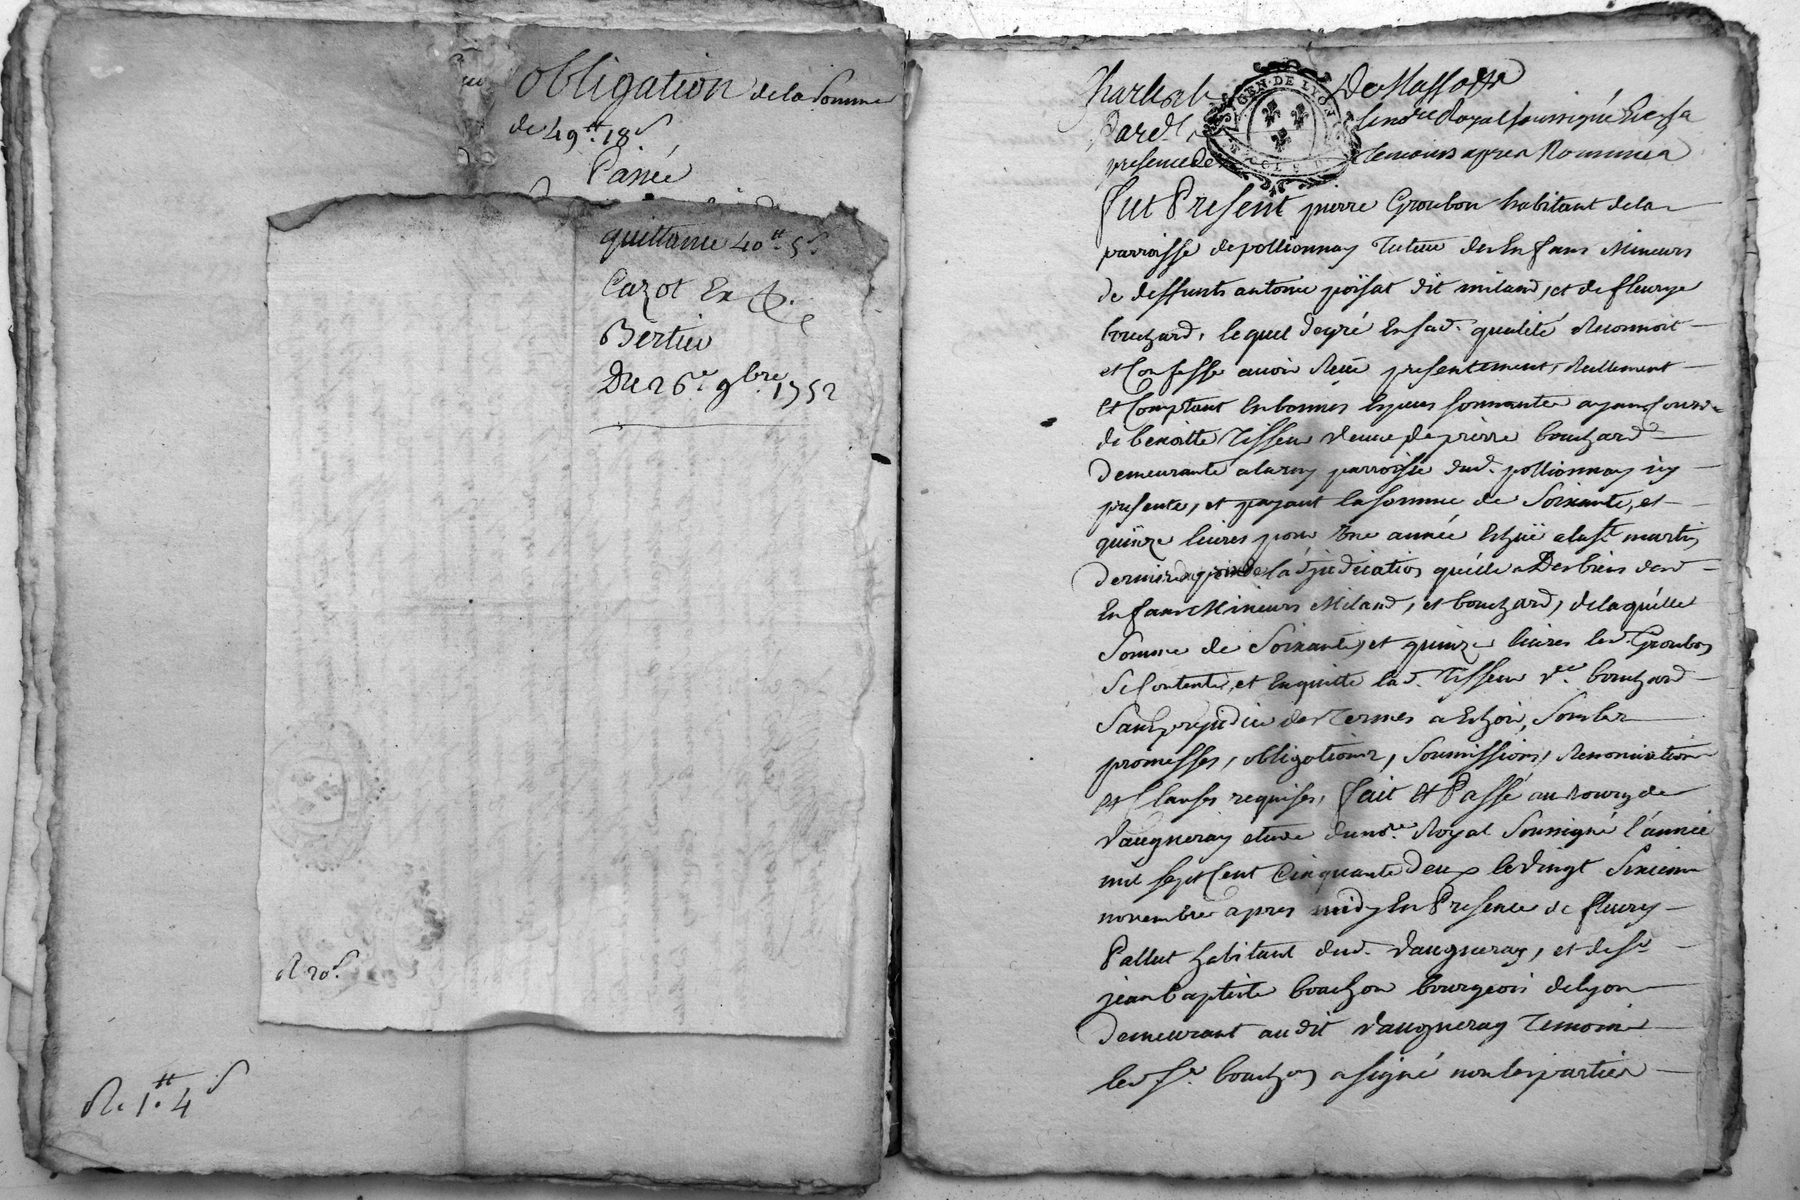 obligation de la Somme
de 49ᵗᵗ 18ˢ
Passée
quittance 40ᵗᵗ 5ˢ
Cazot
Bertier
Du 26ᵉ 9bre 1752
R 20ˢ
R. 1ᵗᵗ 4ˢ
GEN. DE LYON
Par
presence de temoins apres Nommés
Fut Present pierre Groubon habitant de la
parroisse de pollionnay Tuteur des Enfans Mineurs
de deffunts antoine poisat dit milan, et de fleurye
bouchard, lequel de gré En sad. qualité Reconnoit
et Confesse avoir Receu presentement, Reellement
Et Comptant En bonnes Especes sonnantes ayans cours
de benoitte Tisseur Veuve de pierre bouchard
Demeurante a larny parroisse dud. pollionnay icy
presente, et payant la somme de Soixante, et
quinze livres pour Une année Echüe a la St. martin
derniere de l'adjudication qu'elle a Des biens desd
Enfans Mineurs Miland, et bouchard, de laquelle
Somme de Soixante, et quinze livres led. Groubon
Se Contente, et En quitte lad. Tisseur Vᵛᵉ. bouchard
Sans prejudice des Termes a Echoir, Sous les
promesses, obligations, Soumissions, Renonciations
et Clauses requises, fait Et Passé au bourg de
Vaugneray etude du noʳᵉ Royal Soussigné l'année
mil sept Cent Cinquante Deux le Vingt Sixieme
novembre apres midy En Presence de fleury
Pallut habitant dud. Vaugneray, et de Sʳ
jean baptiste bouchon bourgeois de lyon
Demeurant au dit Vaugneray Temoins
led. Sʳ. bouchon a signé non les parties